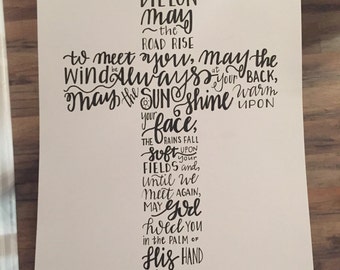 DILLON
may
the
ROAD RISE
to meet you, may the
WIND be Always at your BACK,
may the SUN shine warm
UPON
your
face,
THE RAINS FALL
soft UPON
your
FIELDS and
until we
MEET AGAIN,
MAY God
hold YOU
IN the PALM OF
His HAND